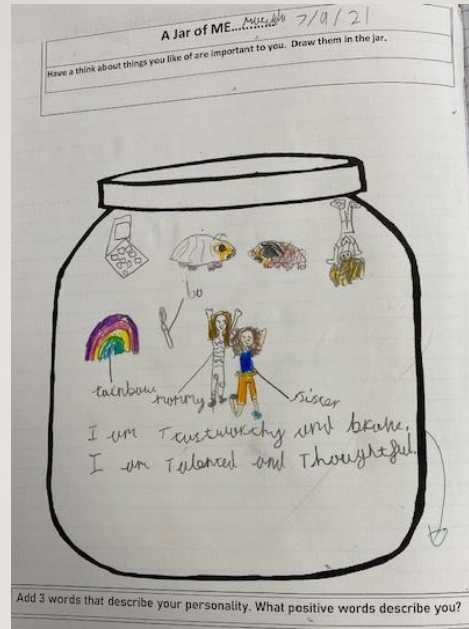 A Jar of ME............. 7/9/21
Have a think about things you like of are important to you. Draw them in the jar.
rainbow
mummy
sister
I am Trustworthy and brake.
I am Talented and Thoughtful.
Add 3 words that describe your personality. What positive words describe you?